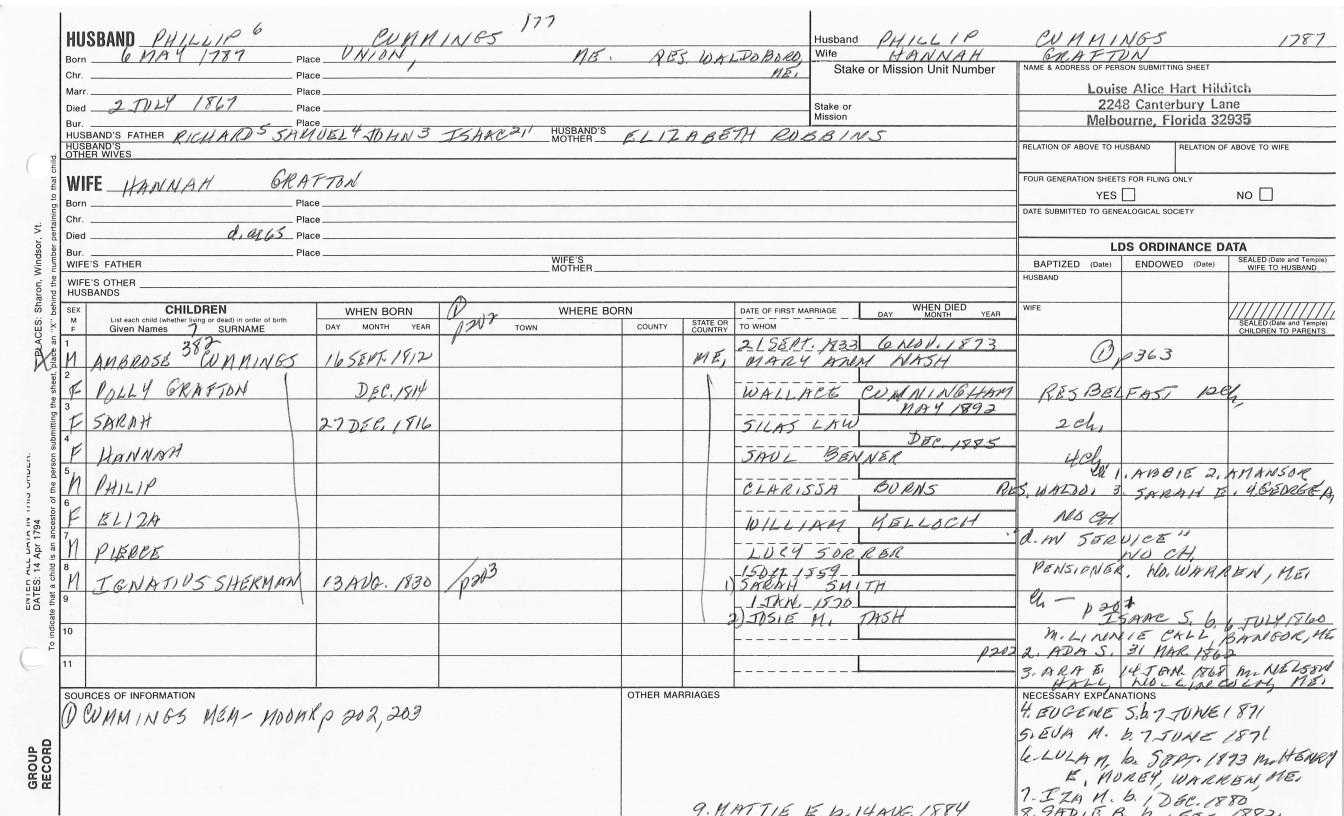 177
HUSBAND PHILLIP 6 CUMMINGS
Born 6 MAY 1787 Place UNION, ME. RES. WALDOBORO, ME.
Chr. Place
Marr. Place
Died 2 JULY 1867 Place
Bur. Place
HUSBAND'S FATHER RICHARD5 SAMUEL4 JOHN3 ISAAC2,1 HUSBAND'S MOTHER ELIZABETH ROBBINS
HUSBAND'S OTHER WIVES
WIFE HANNAH GRAFTON
Born Place
Chr. Place
Died Place
Bur. Place
WIFE'S FATHER WIFE'S MOTHER
WIFE'S OTHER HUSBANDS
Husband PHILLIP CUMMINGS 1787
Wife HANNAH GRAFTON
Stake or Mission Unit Number
Stake or Mission
NAME & ADDRESS OF PERSON SUBMITTING SHEET
Louise Alice Hart Hilditch
2248 Canterbury Lane
Melbourne, Florida 32935
RELATION OF ABOVE TO HUSBAND RELATION OF ABOVE TO WIFE
FOUR GENERATION SHEETS FOR FILING ONLY
YES NO
DATE SUBMITTED TO GENEALOGICAL SOCIETY
LDS ORDINANCE DATA
BAPTIZED (Date) ENDOWED (Date) SEALED (Date and Temple) WIFE TO HUSBAND
HUSBAND
WIFE
SEALED (Date and Temple) CHILDREN TO PARENTS
SEX M F
CHILDREN
List each child (whether living or dead) in order of birth
Given Names 7 SURNAME
WHEN BORN
DAY MONTH YEAR
① p202
WHERE BORN
TOWN COUNTY STATE OR COUNTRY
DATE OF FIRST MARRIAGE
TO WHOM
WHEN DIED
DAY MONTH YEAR
1 M AMBROSE 382 CUMMINGS 16 SEPT. 1812 ME, 21 SEPT. 1833 6 NOV. 1873 MARY ANN NASH ① p363
2 F POLLY GRAFTON DEC. 1814 WALLACE CUNNINGHAM RES BELFAST 12ch,
3 F SARAH 27 DEC. 1816 MAY 1892 SILAS LAW 2ch,
4 F HANNAH DEC. 1885 SAUL BENNER 4ch
5 M PHILIP CLARISSA BURNS RES. WALDO, ch 1. ABBIE 2. AMANSOR 3. SARAH E. 4. GEORGE A,
6 F ELIZA WILLIAM KELLOCH NO CH
7 M PIERCE LUCY SORRER "d. IN SERVICE" NO CH,
8 M IGNATIUS SHERMAN 13 AUG. 1830 p203 1859 1) SARAH SMITH PENSIONER, NO. WARREN, ME,
9 1 JAN. 1870 2) JOSIE M. TASH ch —
ISAAC S. b. 6 JULY 1860
10 M. LINNIE CALL, BANGOR, ME
p202 2. ADA S. 31 MAR 1862
11 3. ARA E 14 JAN. 1868 m. NELSON
HALL, NO. LINCOLN, ME,
SOURCES OF INFORMATION
① CUMMINGS MEM- MOOAR p 202, 203
OTHER MARRIAGES
NECESSARY EXPLANATIONS
4. EUGENE S. b. 7 JUNE 1871
5. EVA M. b. 7 JUNE 1871
6. LULA M, b. SEPT. 1873 m. HENRY
E, MOREY, WARREN, ME,
7. IZA M. b. 1 DEC. 1880
8. SADIE B. b.
9. MATTIE E b. 14 AUG. 1884
PLACES: Sharon, Windsor, Vt.
ENTER ALL DATA IN THIS ORDER:
DATES: 14 Apr 1794
To indicate that a child is an ancestor of the person submitting the sheet, place an "X" behind the number pertaining to that child.
GROUP RECORD